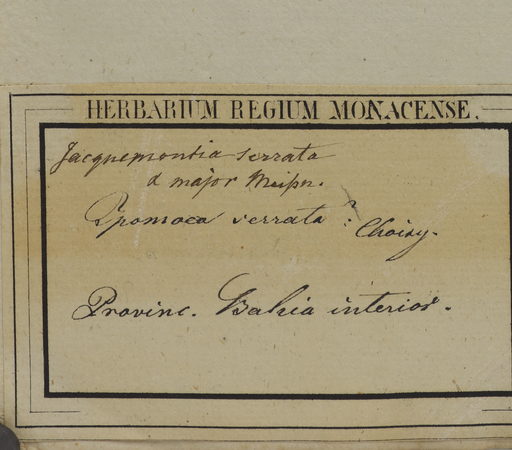 HERBARIUM REGIUM MONACENSE.
Jacquemontia serrata
α major Meißn.
Ipomoea serrata? Choisy.
Provinc. Bahia interior.